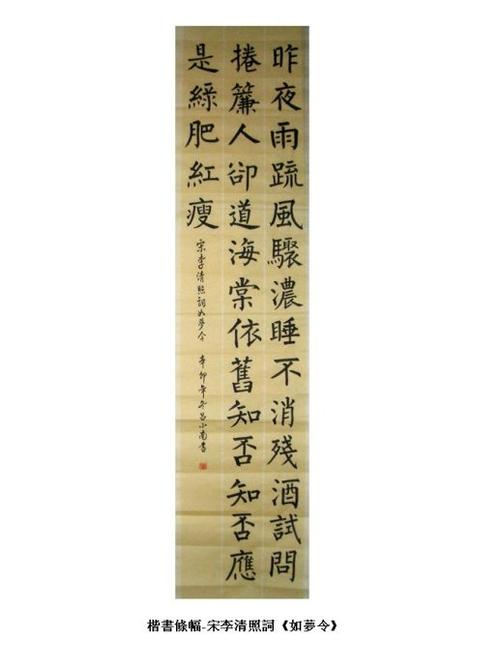 昨夜雨疏風驟濃睡不消殘酒試問
捲簾人卻道海棠依舊知否知否應
是綠肥紅瘦
宋李清照詞如夢令 辛卯年冬呂小南書
楷書條幅-宋李清照詞《如夢令》